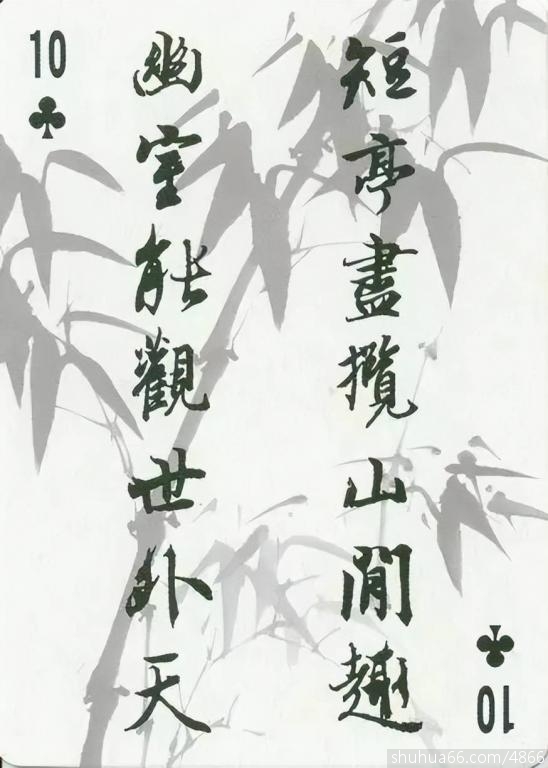 10
短亭盡攬山間趣
幽室能觀世外天
10
shuhua66.com/4866